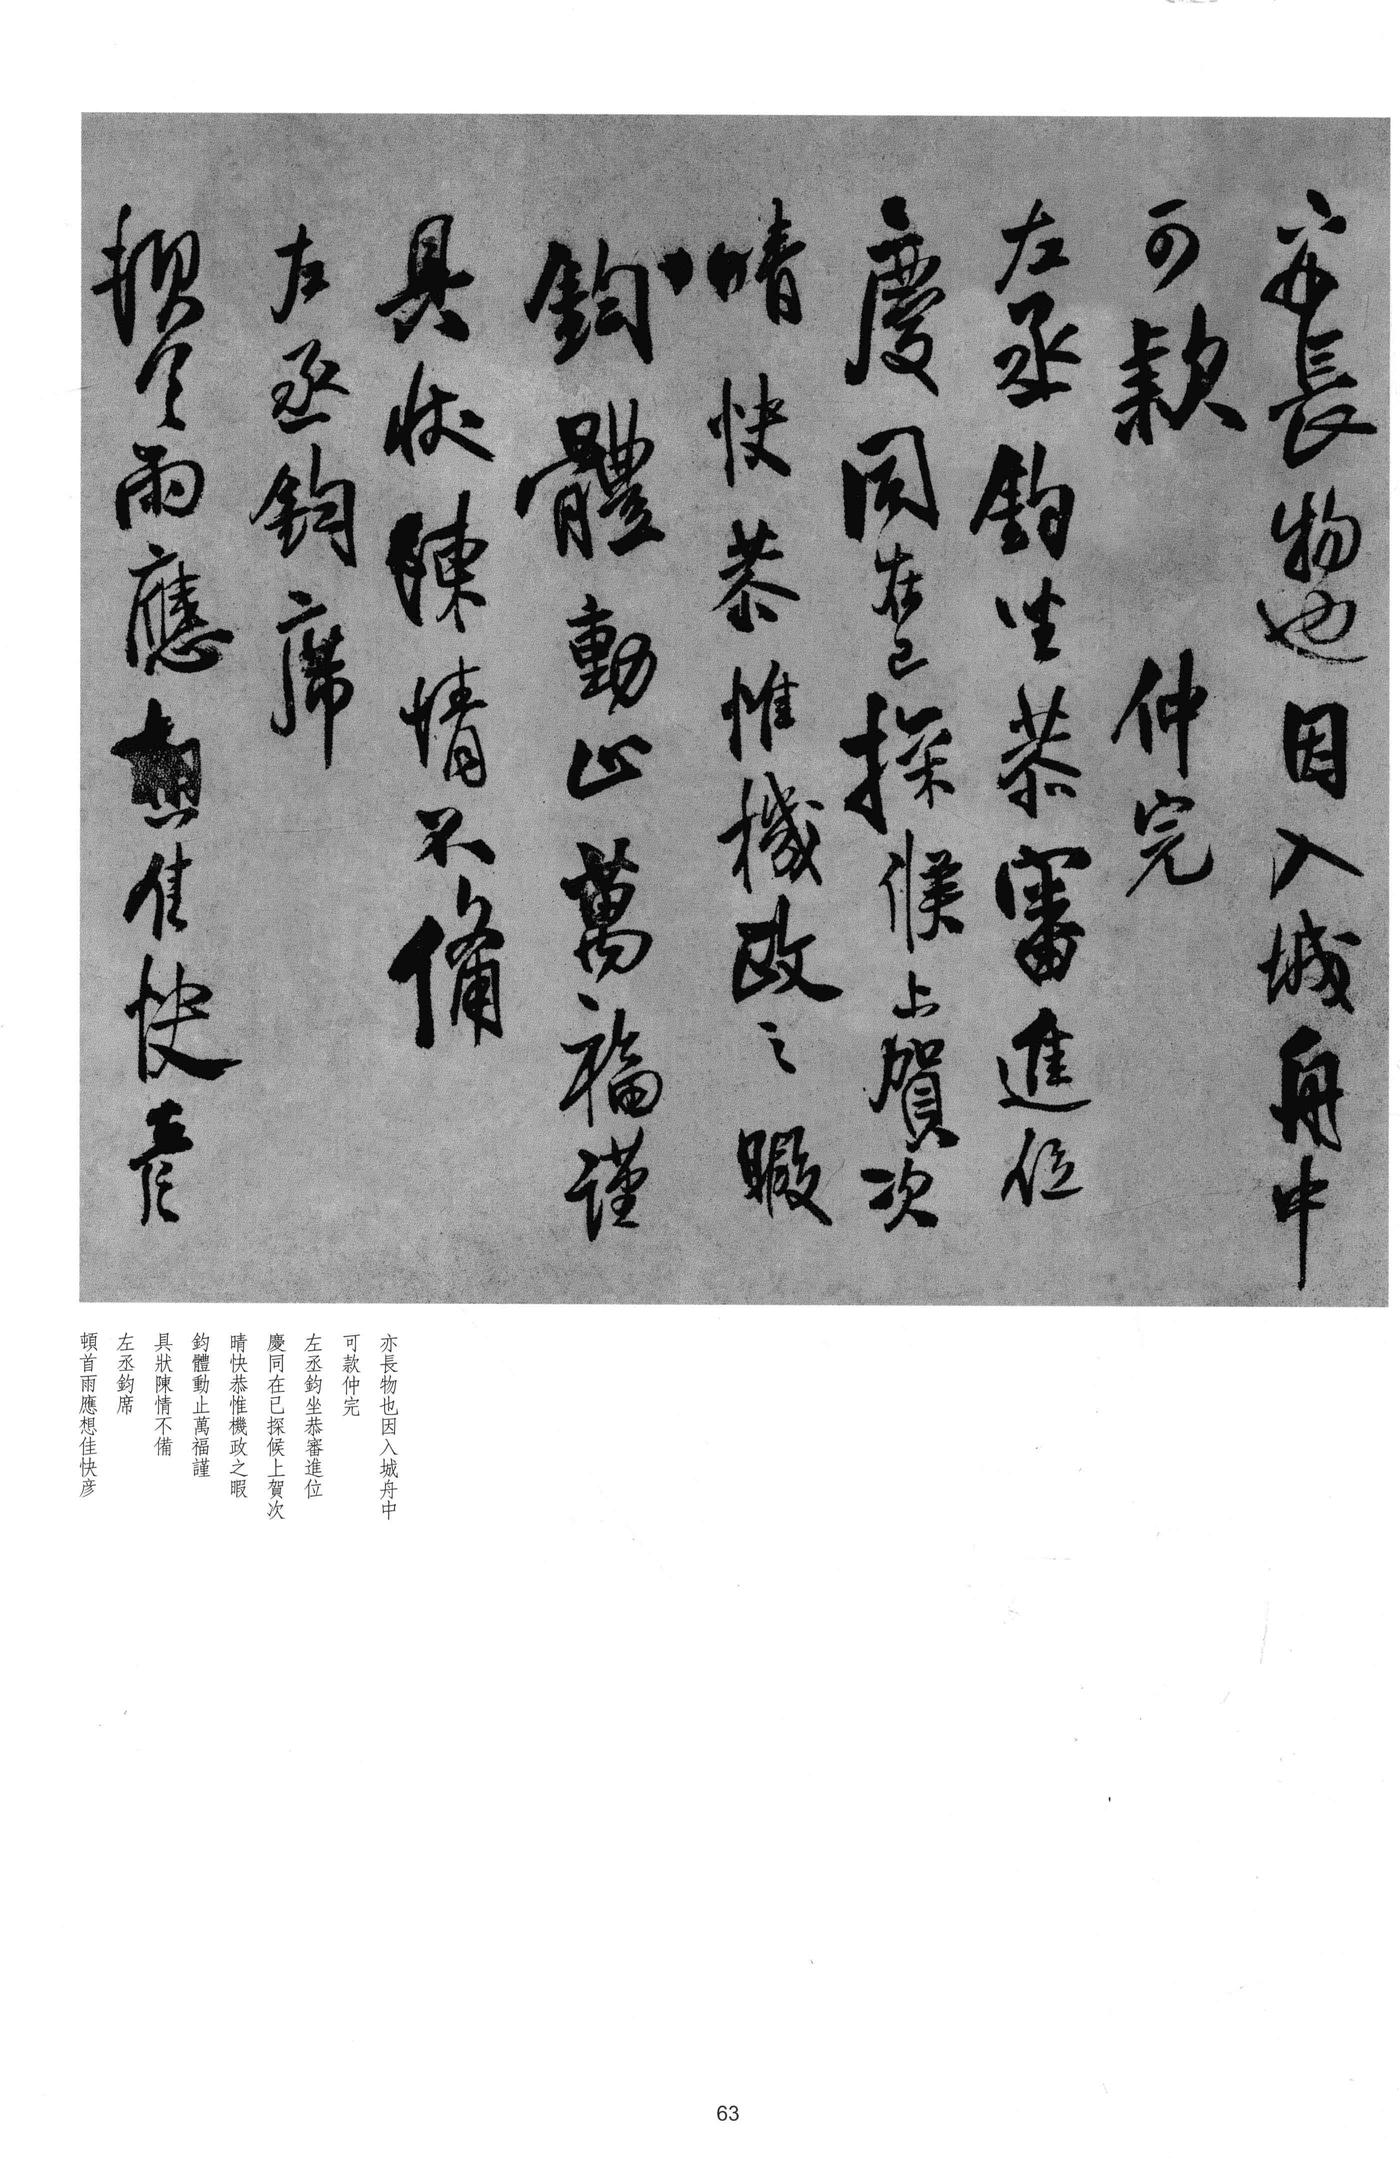 亦長物也因入城舟中
可款仲完
左丞鈞坐恭審進位
慶同在已探候上賀次
晴快恭惟機政之暇
鈞體動止萬福謹
具狀陳情不備
左丞鈞席
頓首雨應想佳快彦
亦長物也因入城舟中
可款仲完
左丞鈞坐恭審進位
慶同在已探候上賀次
晴快恭惟機政之暇
鈞體動止萬福謹
具狀陳情不備
左丞鈞席
頓首雨應想佳快彦
63